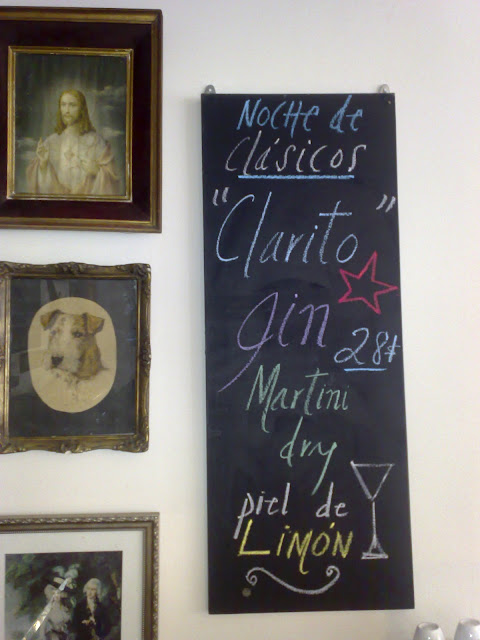 NOCHE de
Clásicos
"Clarito"
gin
28$
Martini
dry
piel de
LIMÓN